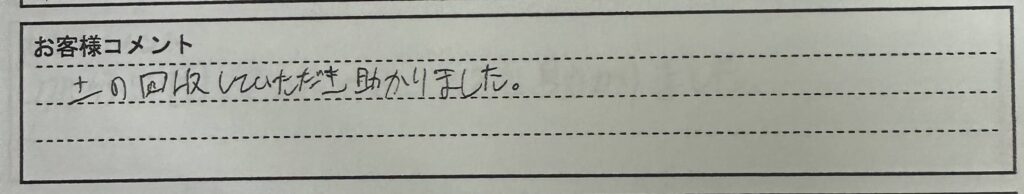 お客様コメント
土の回収していただき助かりました。